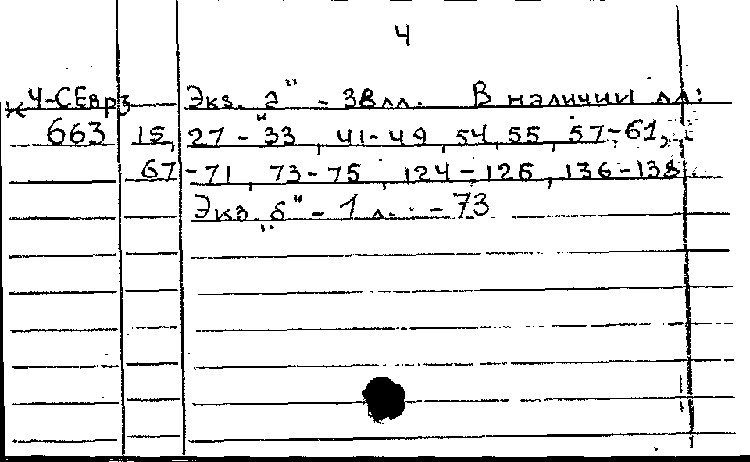 4
Ч-СЕвр3 Экз. „а" - 38 лл. В наличии лл:
663 15, 27-33, 41-49, 54, 55, 57-61,
67-71, 73-75, 124-126, 136-138.
Экз. „б" - 1 л. - 73